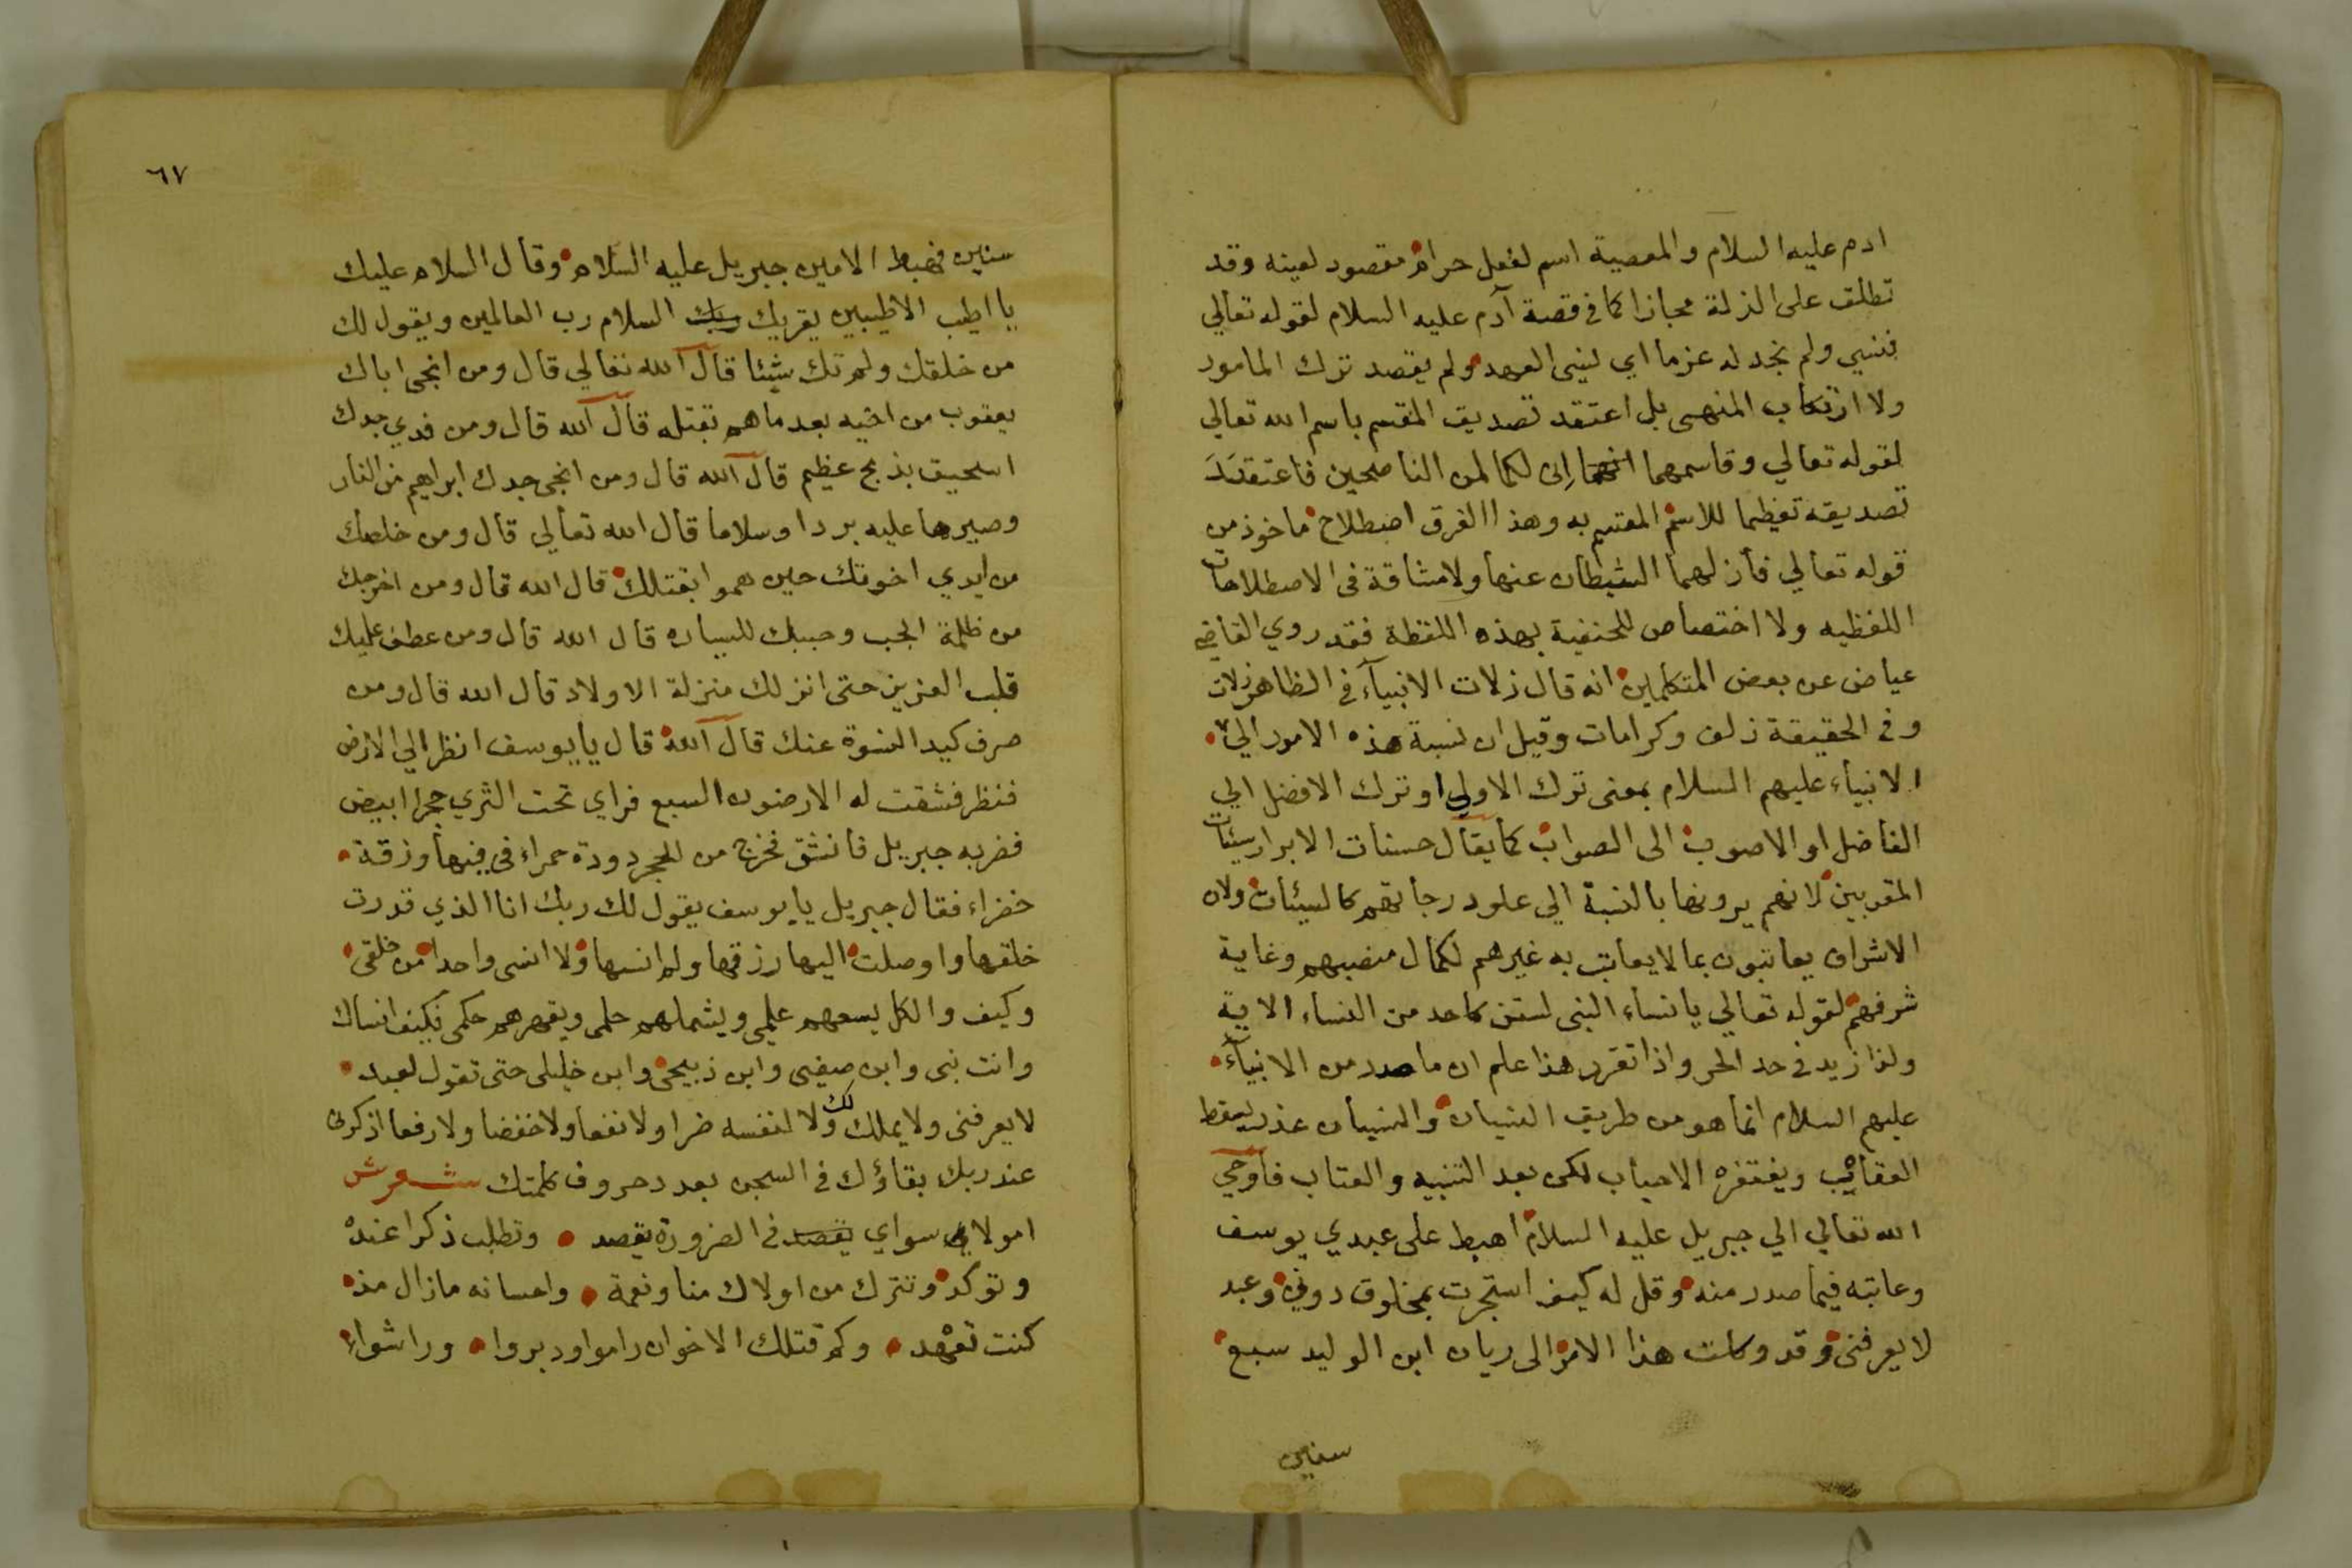 ادم عليه السلام والمعصية اسم لفعل حرام مقصود لعينه وقد
تطلق على الزلة مجازا كما في قصة آدم عليه السلام لقوله تعالي
فنسي ولم نجد له عزما اي لنبي العهد ولم يقصد ترك المامور
ولا ارتكاب المنهى بل اعتقد تصديق المقسم باسم الله تعالي
لقوله تعالي وقاسمهما إنى لكما لمن الناصحين فاعتقد
تصديقه تعظيما للاسم المقسم به وهذا الفرق اصطلاح ماخوذ من
قوله تعالي فأزلهما الشيطان عنها ولا مشاقة فى الاصطلاحات
اللفظيه ولا اختصاص للحنفية بهذه اللفظة فقد روي القاضي
عياض عن بعض المتكلمين انه قال زلات الانبيآء في الظاهر زلات
وفي الحقيقة زلف وكرامات وقيل ان نسبة هذه الامور الي
الانبياء عليهم السلام بمعنى ترك الاولي او ترك الافضل الي
الفاضل او الاصوب الى الصواب كما يقال حسنات الابرار سيئات
المقربين لانهم يرونها بالنسبة الي علو درجاتهم كالسيئات ولان
الاشراف يعاتبون بما لا يعاتب به غيرهم لكمال منصبهم وغاية
شرفهم لقوله تعالي يا نساء النبى لستن كاحد من النساء الاية
ولذا زيد في حد الحر واذا تقرر هذا علم ان ما صدر من الانبيآء
عليهم السلام انما هو من طريق النسيان والنسيان عذر يسقط
العقاب ويغتفره الاحباب لكن بعد التنبيه والعتاب فأوحي
الله تعالي الي جبريل عليه السلام اهبط على عبدي يوسف
وعاتبه فيما صدر منه وقل له كيف استجرت بمخلوق دوني وعبد
لا يعرفنى وقد وكلت هذا الامر الى ريان ابن الوليد سبع
سنين
٦٧
سنين فهبط الامين جبريل عليه السلام وقال السلام عليك
يا اطيب الاطيبين يقريك ربك السلام رب العالمين ويقول لك
من خلقك ولم تك شيئا قال الله تعالي قال ومن انجى اباك
يعقوب من اخيه بعد ما هم بقتله قال الله قال ومن فدي جدك
اسحيق بذبح عظيم قال الله قال ومن انجى جدك ابراهيم من النار
وصيرها عليه بردا وسلاما قال الله تعالي قال ومن خلصك
من ايدي اخوتك حين هموا بقتلك قال الله قال ومن اخرجك
من ظلمة الجب وحببك للسياره قال الله قال ومن عطف عليك
قلب العزيز حتى انزلك منزلة الاولاد قال الله قال ومن
صرف كيد النسوة عنك قال الله قال يا يوسف انظر الي الارض
فنظر فشقت له الارضون السبع فراي تحت الثري حجرا ابيض
فضربه جبريل فانشق فخرج من الحجر دودة حمراء في فيها ورقة
خضراء فقال جبريل يا يوسف يقول لك ربك انا الذي قدرت
خلقها واوصلت اليها رزقها ولم انسها ولا انسى واحدا من خلقى
وكيف والكل يسعهم علمى ويشملهم حلمى ويقهرهم حكمى فكيف انساك
وانت نبى وابن صفيى وابن ذبيحى وابن خليلى حتى تقول لعبد
لا يعرفنى ولا يملك لك ولا لنفسه ضرا ولا نفعا ولا خفضا ولا رفعا اذكرنى
عند ربك بقاؤك في السجن بعدد حروف كلمتك شعر
امولاي سواي يقصد في الضرورة يقصد وتطلب ذكرا عنده
وتوكد وتترك من اولاك منا ونعمة واحسانه مازال منه
كنت تعهد وكم قتلك الاخوان راموا ودبروا وراشوا